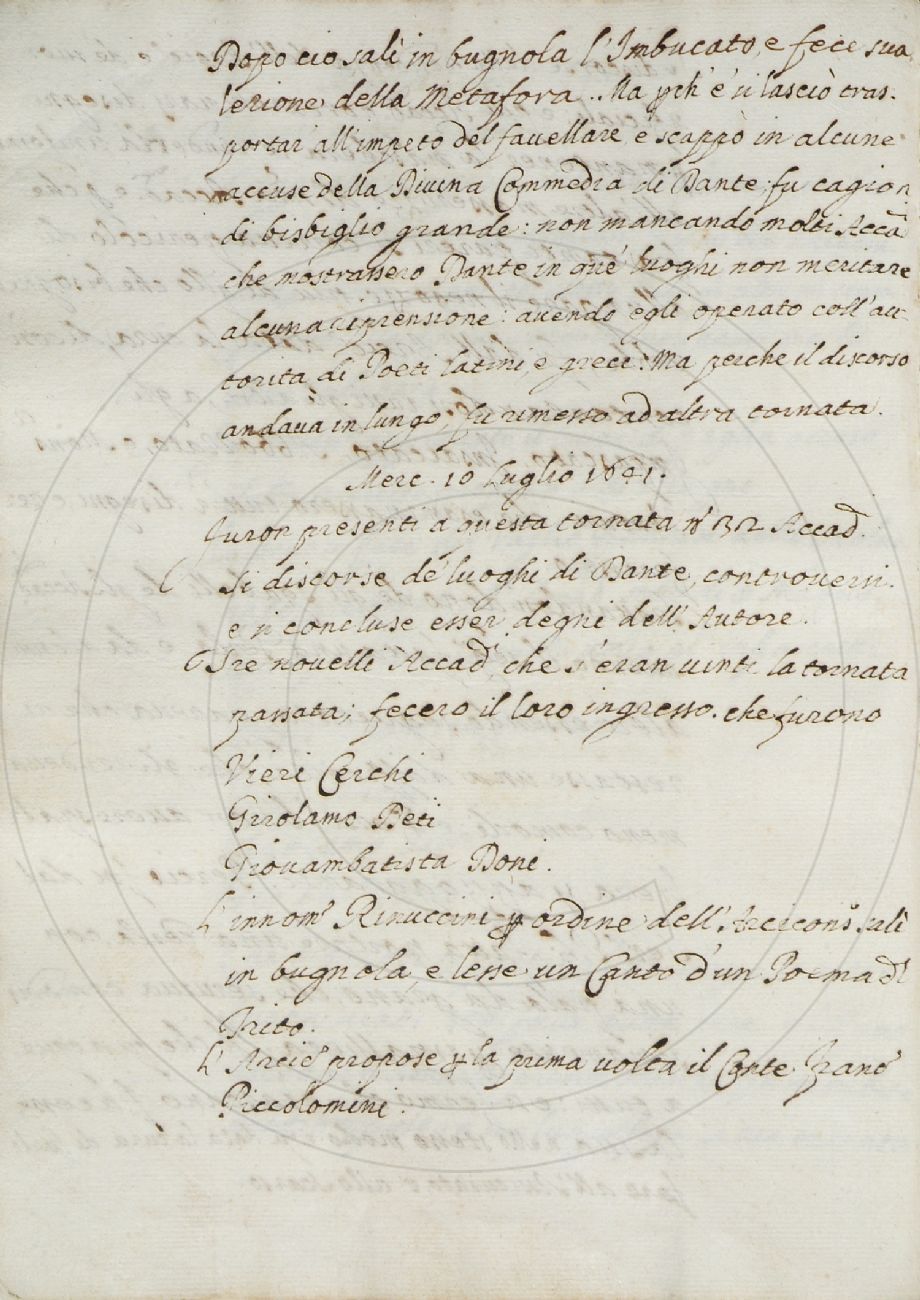 Dopo cio salì in bugnola l'Imbucato, e fece sua
lezione della Metafora. Ma ꝑch' e' si lasciò tras-
portar all'impeto del favellare e scappò in alcune
accuse della Divina Commedia di Dante; fu cagion
di bisbiglio grande: non mancando molti Accad
che mostrassero Dante in que' luoghi non meritare
alcuna riprensione: avendo egli operato coll'au-
torita di Poeti latini e greci: Ma perche il discorso
andava in lungo, fu rimesso ad altra tornata.
Merc. 10 Luglio 1641.
Furon presenti a questa tornata nº 32 Accad.
Si discorse de' luoghi di Dante, controversi.
e si concluse esser degni dell'Autore.
Tre novelli Accad. che s'eran vinti la tornata
passata; fecero il loro ingresso. che furono
Vieri Cerchi
Girolamo Beti
Giovambatista Doni.
L'innomº Rinuccini ꝑ ordine dell'Arciconsº salì
in bugnola, e lesse un Canto d'un Poema d
L'Arcicº propose ꝑ la prima volta il Conte Francº
Piccolomini.